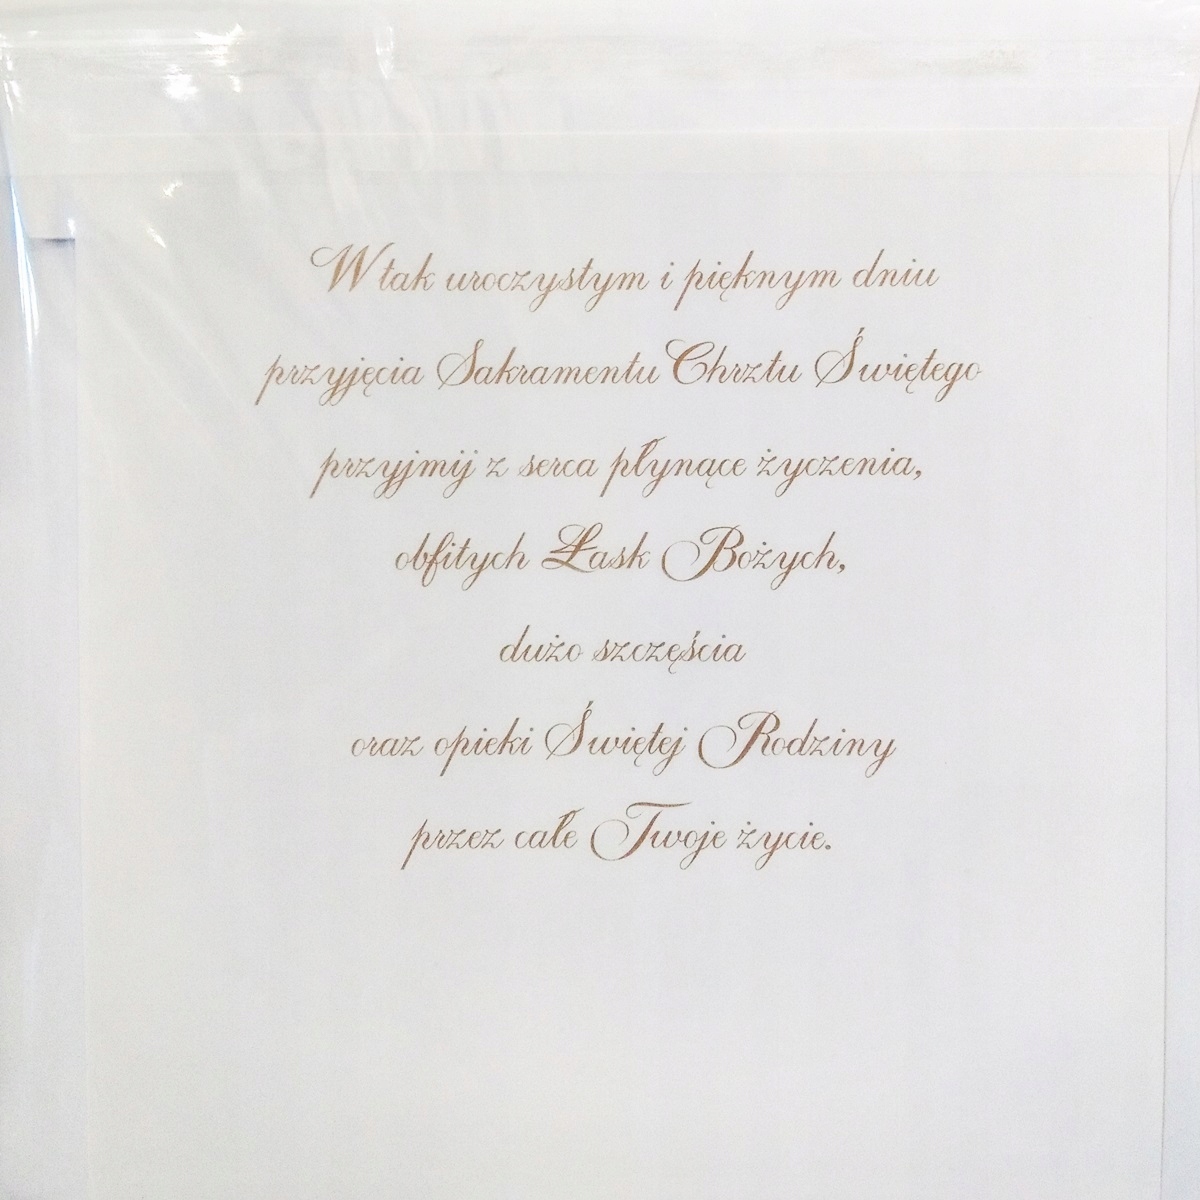 W tak uroczystym i pięknym dniu
przyjęcia Sakramentu Chrztu Świętego
przyjmij z serca płynące życzenia,
obfitych Łask Bożych,
dużo szczęścia
oraz opieki Świętej Rodziny
przez całe Twoje życie.